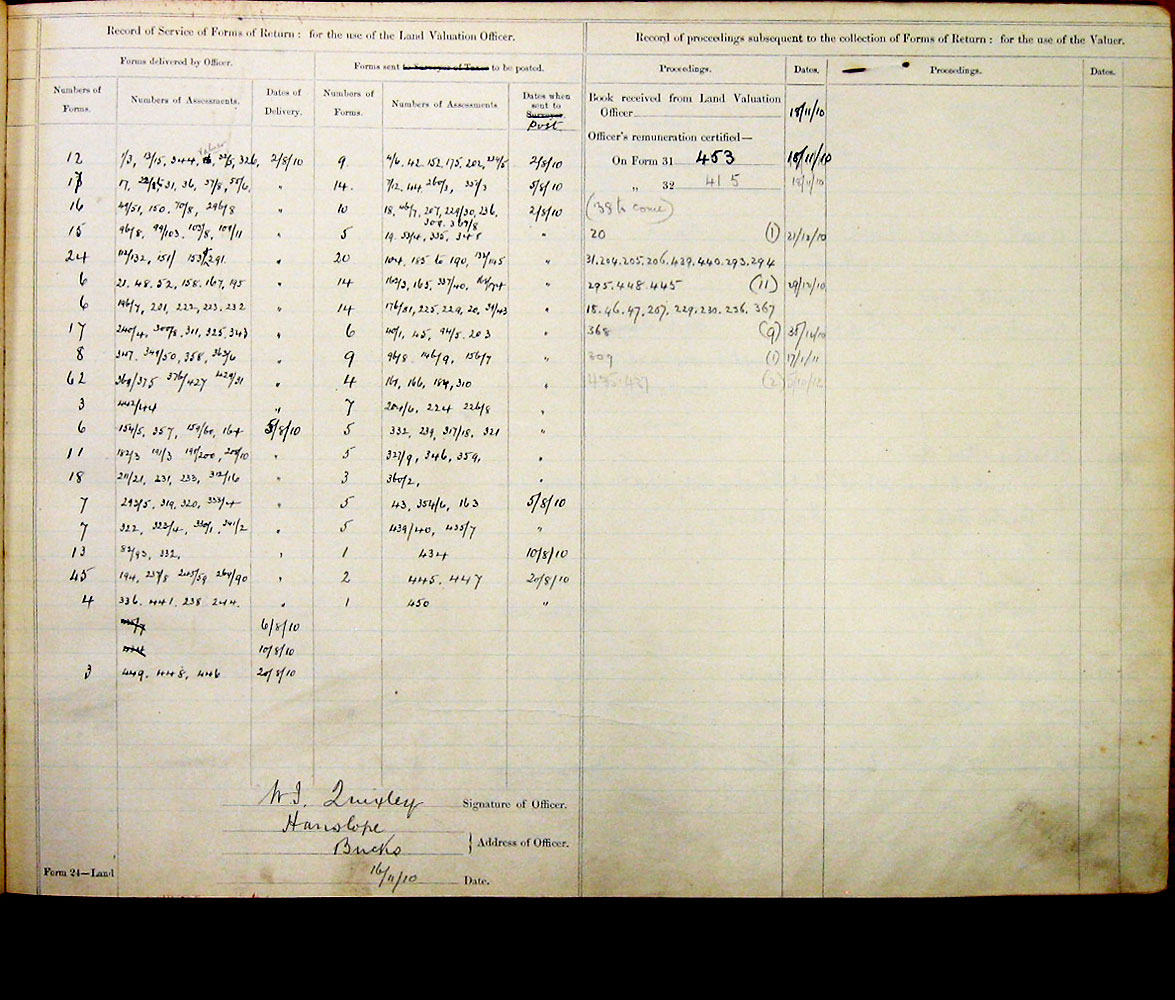 Record of Service of Forms of Return: for the use of the Land Valuation Officer.
Record of proceedings subsequent to the collection of Forms of Return: for the use of the Valuer.
Forms delivered by Officer.
Forms sent to Surveyor of Taxes to be posted.
Proceedings. Dates. Proceedings. Dates.
Numbers of Forms. Numbers of Assessments. Dates of Delivery. Numbers of Forms. Numbers of Assessments Dates when sent to Surveyor Post
Book received from Land Valuation
Officer 18/11/10
Officer's remuneration certified—
On Form 31 453 18/11/10
„ 32 415 18/11/10
(38 to come)
20 (1) 21/12/10
31.204.205.206.439.440.293.294
295.448.445 (11) 29/12/10
18.46.47.207.229.230.236.367
368 (9)
309 (1) 17/1/11
435.437 (2)
12 2/8/10 9 4/6, 42. 152, 175, 202, 2/8/10
17, 31, 36, 37/8, „ 14. 7/12, 44, 260/1, 35/3 5/8/10
16 49/51, 150, 70/8, 296/8 „ 10 18, 46/7, 207, 229/30, 236, 2/8/10
309. 367/8
15 96/8, 99/103, 103/8, 109/11 „ 5 19, 33/4, 335, 348 „
24 112/132, 151/ 291. „ 20 104, 185 to 190, 132/145 „
6 21, 48, 52, 158, 167, 195 „ 14 162/3, 165, 337/40, „
6 196/7, 201, 222, 223, 232 „ 14 176/81, 225, 229, 20, 39/43 „
17 240/4, 300/8, 311, 325, 343 „ 6 40/1, 45, 94/5, 203 „
8 347, 349/50, 358, 363/6 „ 9 96/8, 146/9, 156/7 „
62 369/375 376/427 429/31 „ 4 161, 166, 184, 310 „
3 442/44 „ 7 204/6, 224 226/8 „
6 154/5, 357, 159/60, 164 5/8/10 5 332, 239, 317/18, 321 „
11 182/3 191/3 198/200, 208/10 „ 5 327/9, 346, 359, „
18 211/21, 231, 233, 312/16 „ 3 360/2, „
7 293/5, 319, 320, 333/4 „ 5 43, 354/6, 163 5/8/10
7 322, 323/4, 330/1, 341/2 „ 5 439/40, 435/7 „
13 82/93, 332, „ 1 434 10/8/10
45 194, 237/8 245/59 260/90 „ 2 445, 447 20/8/10
4 336. 441. 238. 244. „ 1 450 „
6/8/10
10/8/10
3 449, 448, 446 20/8/10
W. J. Quixley Signature of Officer.
Hanslope
Bucks Address of Officer.
16/11/10 Date.
Form 24—Land